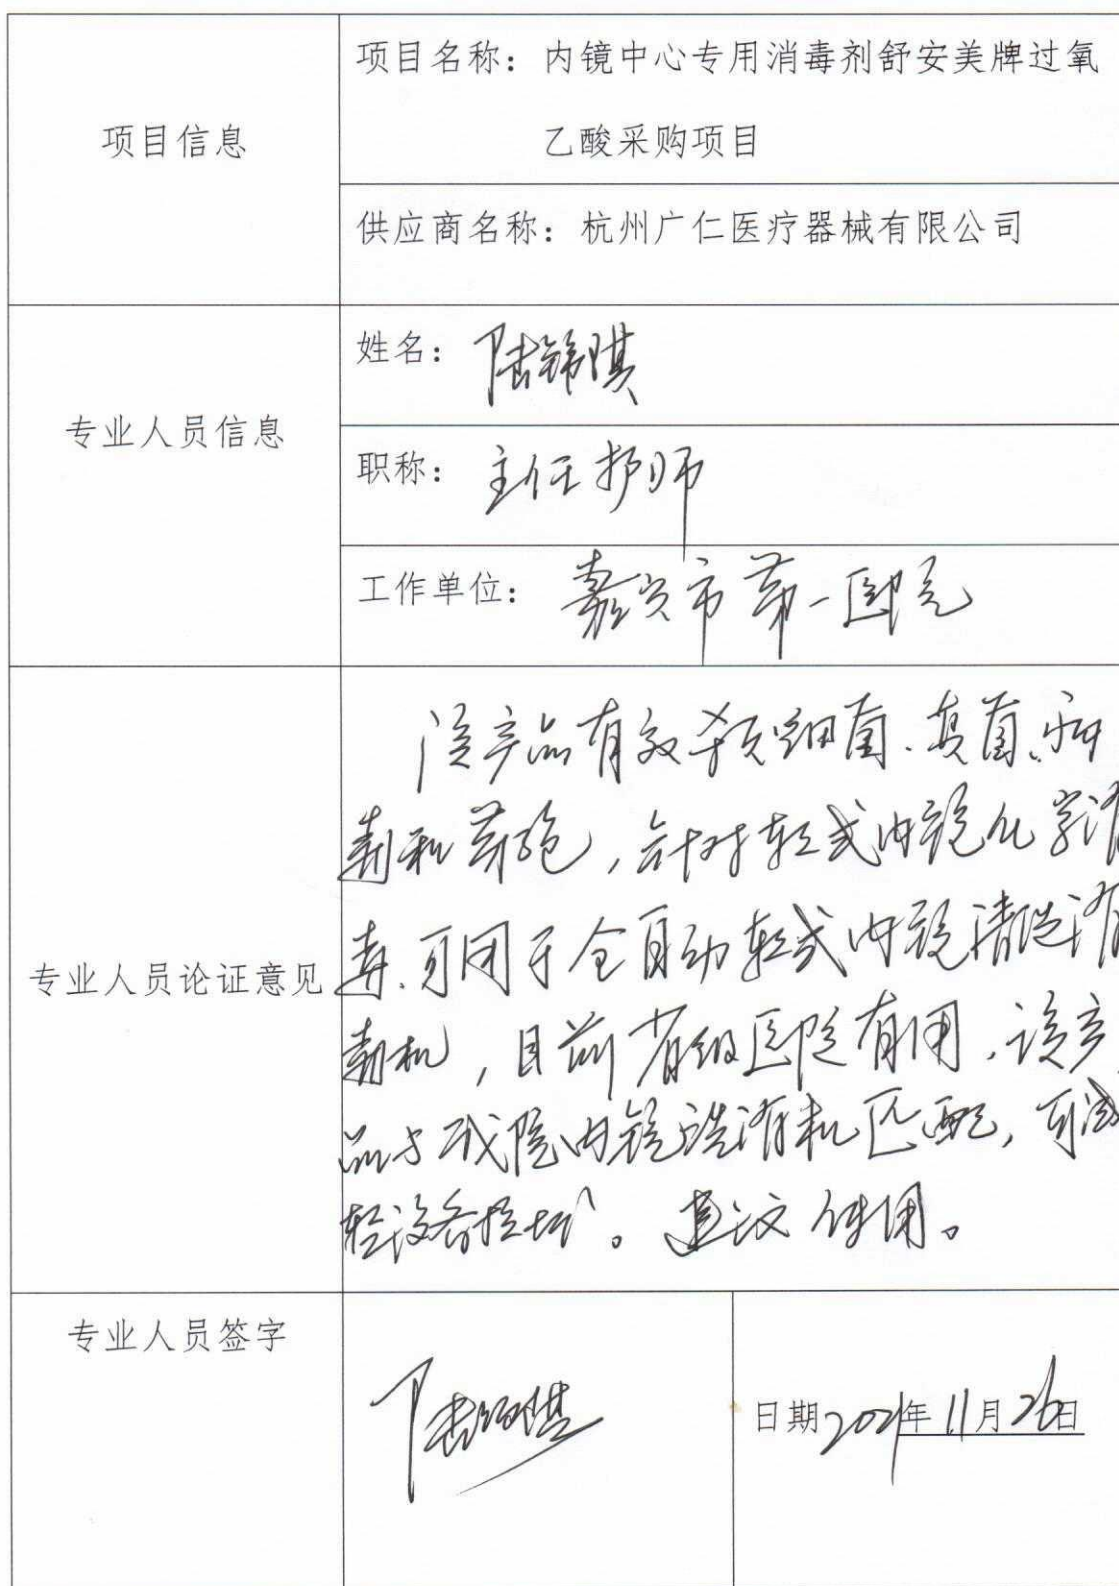 项目信息
项目名称：内镜中心专用消毒剂舒安美牌过氧
乙酸采购项目
供应商名称：杭州广仁医疗器械有限公司
专业人员信息
姓名：陆锦琪
职称：主任护师
工作单位：嘉兴市第一医院
专业人员论证意见
该产品有效杀灭细菌、真菌、病
毒和芽孢，针对软式内镜化学消
毒、可用于全自动软式内镜清洗消
毒机，目前省级医院有用，该产
品与我院内镜洗消机匹配，可减
轻设备损坏。建议使用。
专业人员签字
陆锦琪
日期2021年11月26日